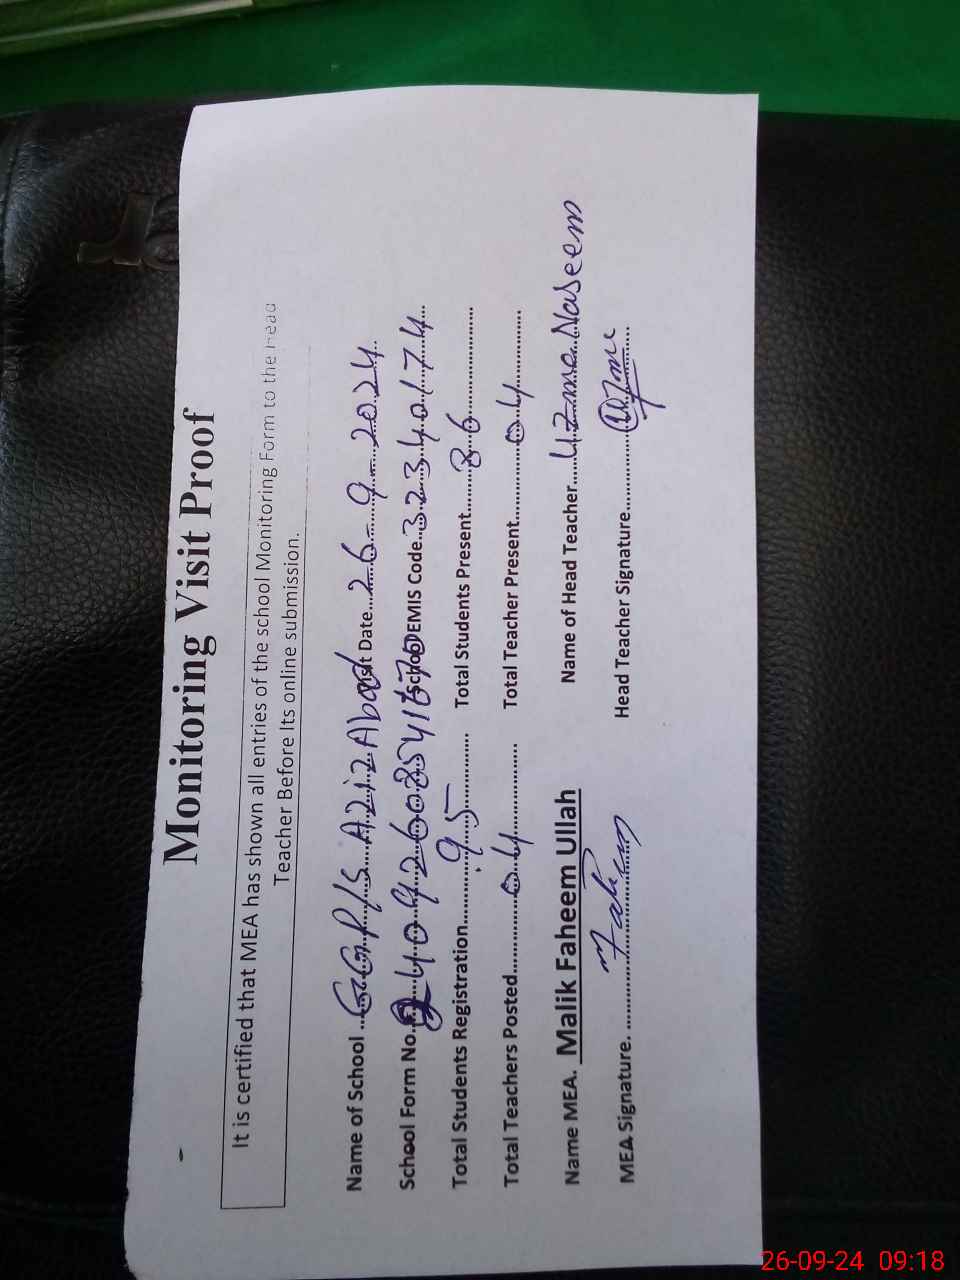 Monitoring Visit Proof
It is certified that MEA has shown all entries of the school Monitoring Form to the Head
Teacher Before Its online submission.
Name of School ...GGP/S Aziz Abad Visit Date...26-9-2024
School Form No... School EMIS Code...32340174
Total Students Registration...95 Total Students Present...86
Total Teachers Posted...04 Total Teacher Present...04
Name MEA. Malik Faheem Ullah Name of Head Teacher...Uzma Naseem
MEA Signature. ...Fahem Head Teacher Signature...Uzma
26-09-24 09:18